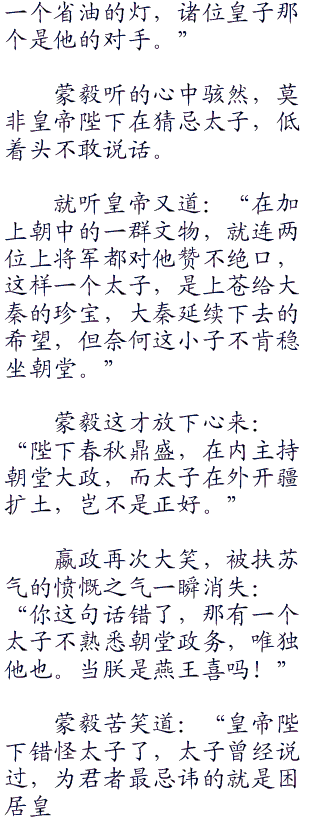 一个省油的灯，诸位皇子那
个是他的对手。”
蒙毅听的心中骇然，莫
非皇帝陛下在猜忌太子，低
着头不敢说话。
就听皇帝又道：“在加
上朝中的一群文物，就连两
位上将军都对他赞不绝口，
这样一个太子，是上苍给大
秦的珍宝，大秦延续下去的
希望，但奈何这小子不肯稳
坐朝堂。”
蒙毅这才放下心来：
“陛下春秋鼎盛，在内主持
朝堂大政，而太子在外开疆
扩土，岂不是正好。”
嬴政再次大笑，被扶苏
气的愤慨之气一瞬消失：
“你这句话错了，那有一个
太子不熟悉朝堂政务，唯独
他也。当朕是燕王喜吗！”
蒙毅苦笑道：“皇帝陛
下错怪太子了，太子曾经说
过，为君者最忌讳的就是困
居皇